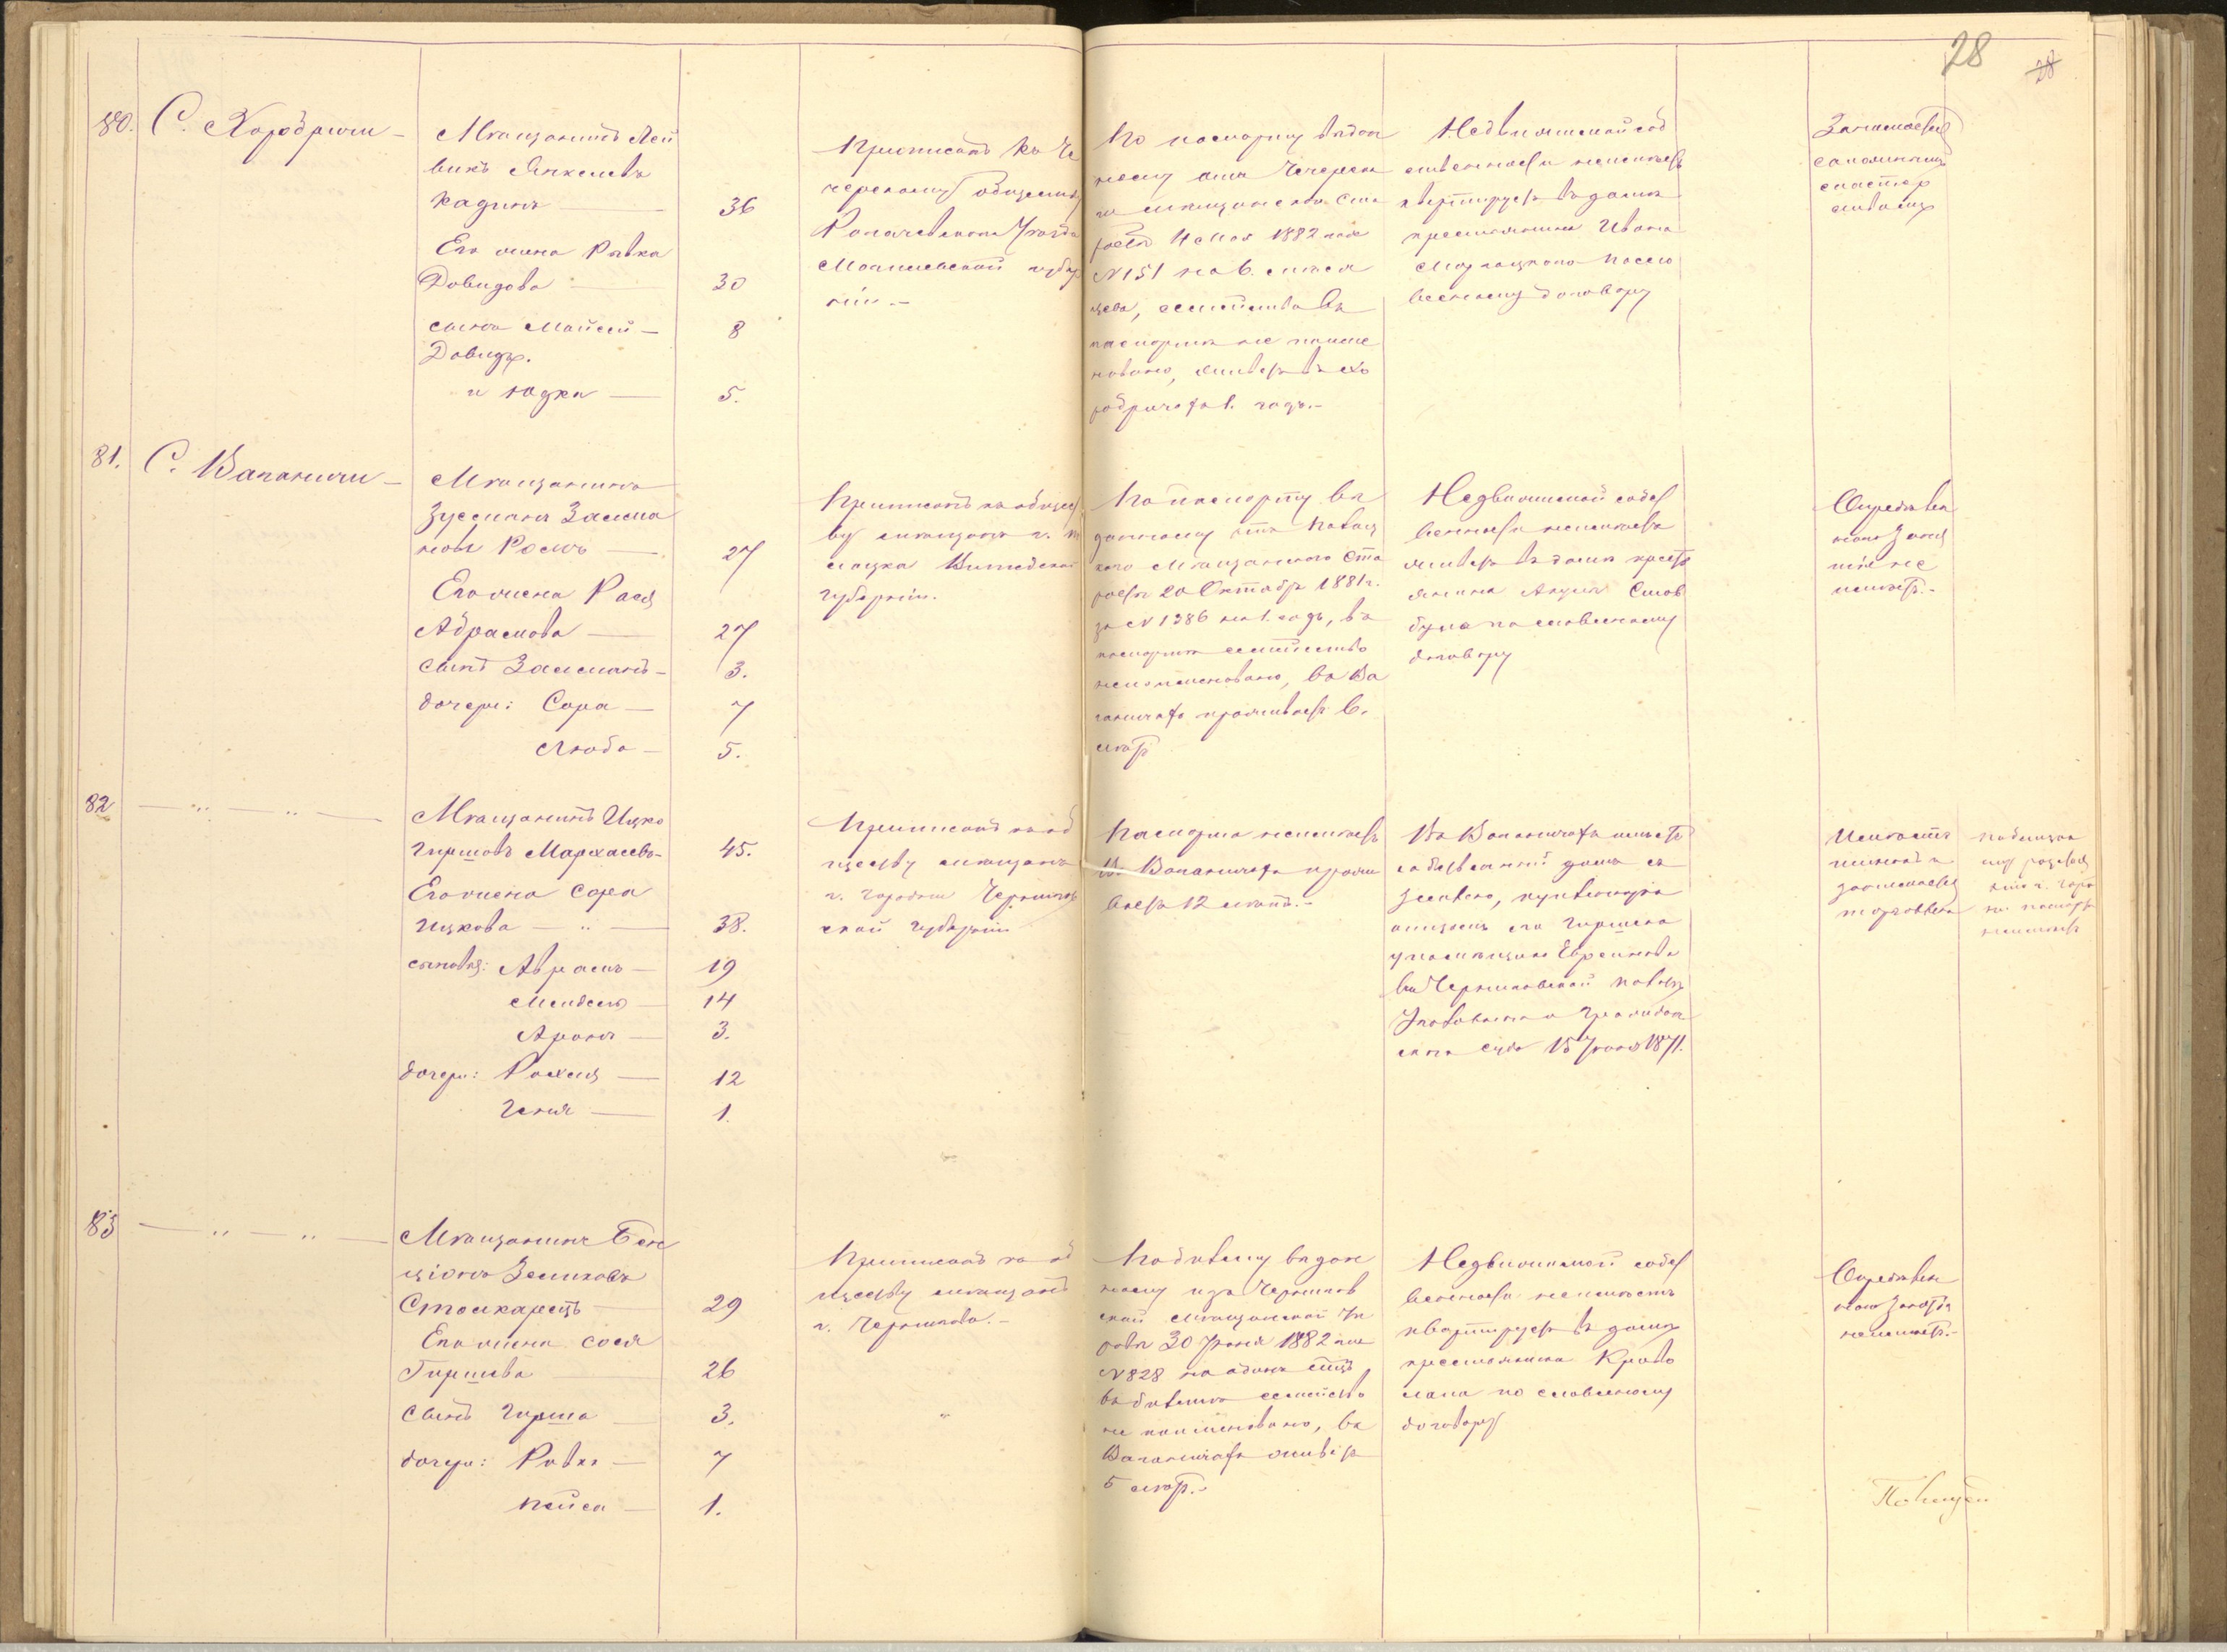 28
28
80.
С. Хоробричи —
Мѣщанинъ Лей
викъ Янкелевъ
Кадинъ — 36
Его жена Ривка
Довидова — 30
сынъ Мойсей — 8
Довидъ.
и Юдка — 5.
Приписанъ къ Че
черскому обществу
Рогачевскаго Уѣзда
Могилевской губер
ніи.—
По паспорту выдан
ному отъ Чечерска
го мѣщанскаго Ста
росты 4 Мая 1882 года
№ 151 на 6 мѣся
цевъ, семейство въ
паспортѣ не поиме
новано, живетъ въ Хо
робричахъ 1. годъ.—
Недвижимой соб
ственности не имѣетъ
квартируетъ въ домѣ
крестьянина Ивана
по сло
весному договору
Занимается
сапожнымъ
мастер
ствомъ
81.
С. Ваганичи —
Мѣщанинъ
Зусманъ Залма
новъ — 27
Его жена Рася
Абрамова — 27
сынъ Залманъ — 3.
дочери: Сора — 7
Люба — 5.
Приписанъ къ общест
ву мѣщанъ г. П
лоцка Витебской
губерніи.
По паспорту вы
данному отъ
каго Мѣщанскаго Ста
росты 20 Октября 1881 г.
за № 1286 на 1. годъ, въ
паспортѣ семейство
непоименовано, въ Ва
ганичахъ проживаетъ 6.
лѣтъ
Недвижимой собст
венности неимѣетъ
живетъ въ домѣ кресть
янина
по словесному
договору
Опредѣлен
наго заня
тія не
имѣетъ.—
82
— „ — „ —
Мѣщанинъ Ицко
Гиршовъ — 45.
Его жена Сора
Ицкова — „ — 38.
сыновья: Абрамъ — 19
Мендель — 14
Аронъ — 3.
дочери: — 12
Геня — 1.
Приписанъ къ об
ществу мѣщанъ
г. Городни Чернигов
ской губерніи
Паспорта неимѣетъ
Въ Ваганичахъ прожи
ваетъ 12 лѣтъ.—
Въ Ваганичахъ имѣетъ
собственный домъ съ
землею, купленную
отцомъ его Гиршомъ
у помѣщика
въ Черниговской палатѣ
Уголовнаго и Граждан
скаго суда 15 Іюня 1871.
Имѣетъ
и
занимается
торговлею
83
— „ — „ —
Мѣщанинъ Бен
ціонъ Зеликовъ
— 29
Его жена Сося
Гиршева — 26
Сынъ Гирша — 3.
дочери: Ривка — 7
Пейса — 1.
Приписанъ къ об
ществу мѣщанъ
г. Чернигова.—
По билету выдан
ному изъ Чернигов
ской мѣщанской Уп
равы 30 Іюня 1882 года
№ 828 на одинъ мѣсяцъ
въ билетѣ семейство
не поименовано, въ
Ваганичахъ живетъ
5 лѣтъ.—
Недвижимой собст
венности неимѣетъ
квартируетъ въ домѣ
крестьянина
по словесному
договору
Опредѣлен
наго занятія
неимѣетъ.—